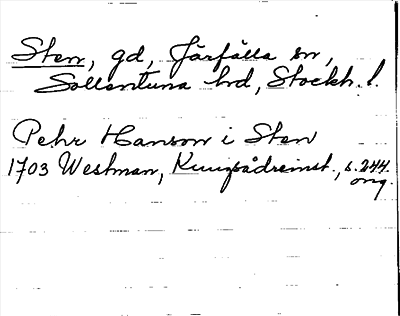 Sten, gd, Järfälla sn,
Sollentuna hd, Stockh. l.
Pehr Hanson i Sten
1703 Westman, Kungsådreinst., s. 244.
orig.